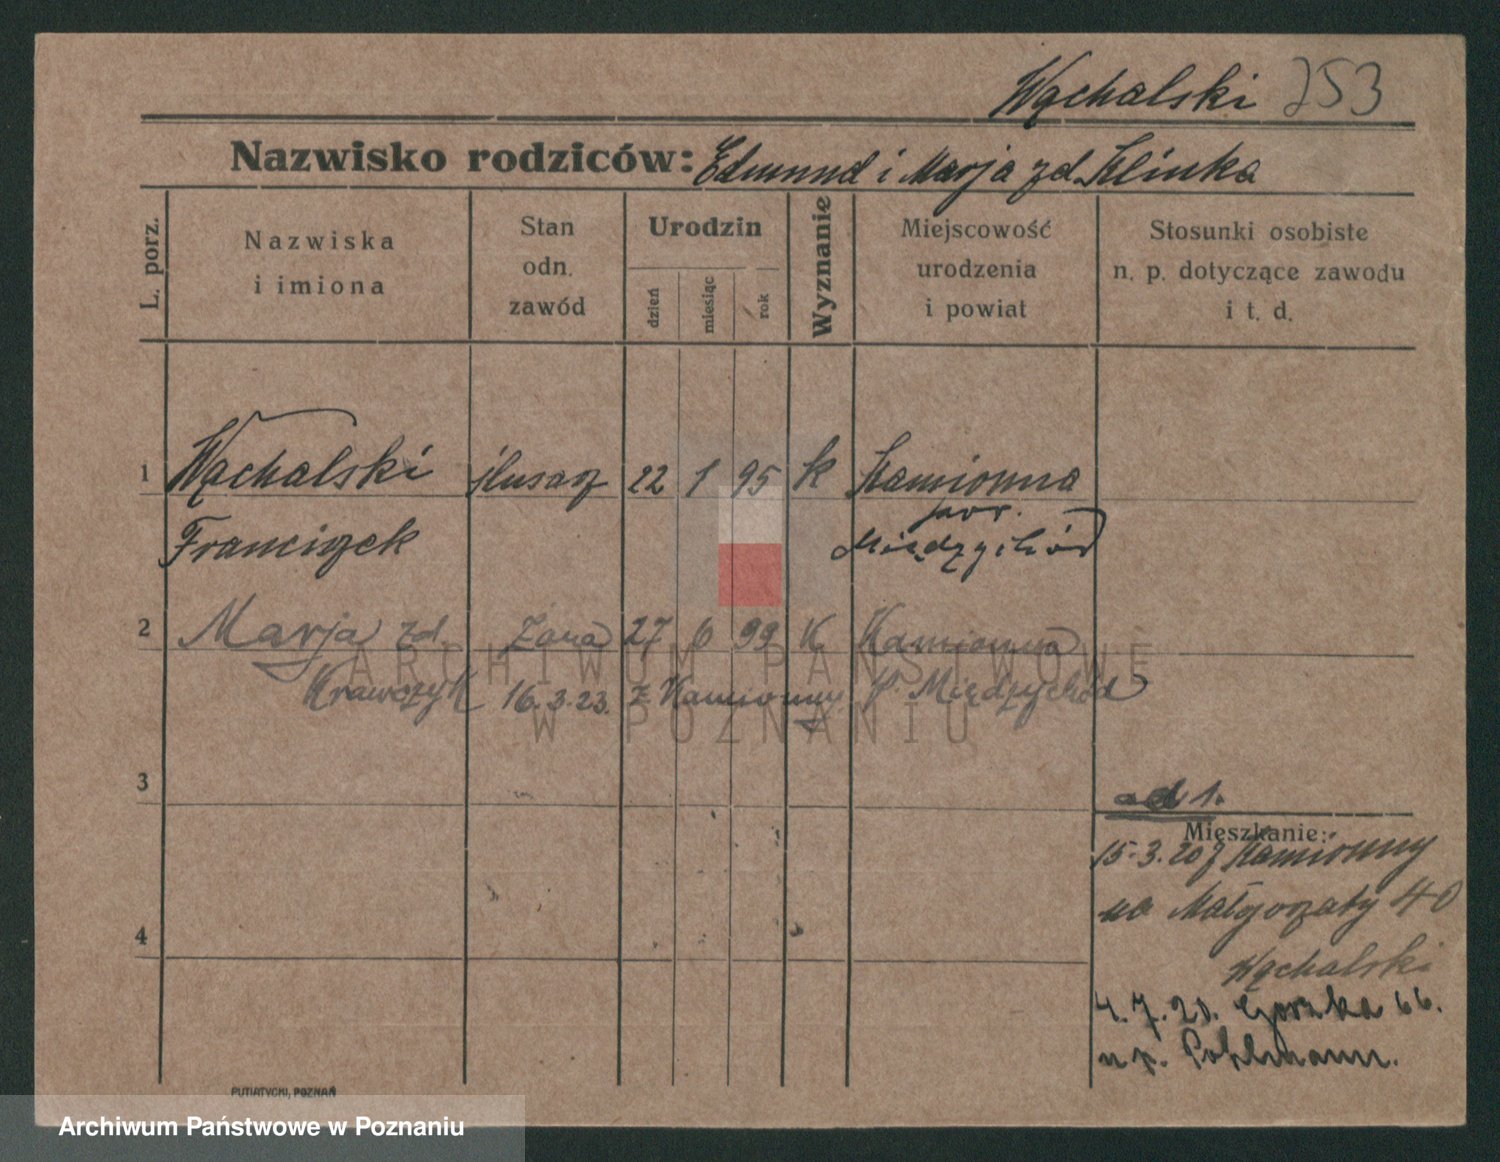 Wąchalski 253
Nazwisko rodziców: Edmund i Marja zd Klinka
L. porz.
Nazwiska
i imiona
Stan
odn.
zawód
Urodzin
dzień
miesiąc
rok
Wyznanie
Miejscowość
urodzenia
i powiat
Stosunki osobiste
n. p. dotyczące zawodu
i t. d.
1 Wąchalski ślusarz 22 1 95 k Kamionna
pow.
Franciszek Międzychód
2 Marja zd. Żona 27 6 99 K Kamionna
Krawczyk 16.3.23. z Kamionny p. Międzychód
3
ad 1.
Mieszkanie:
15.3.20 z Kamionny
na Małgorzaty 40
4
Wąchalski
4.7.20. Gorzka 66.
u p. Pohlmann.
PUTIATYCKI, POZNAŃ
ARCHIWUM PAŃSTWOWE
W POZNANIU
Archiwum Państwowe w Poznaniu